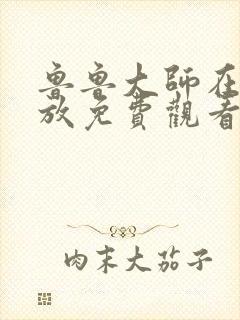 魯魯大師在
放免費觀看
肉末大茄子